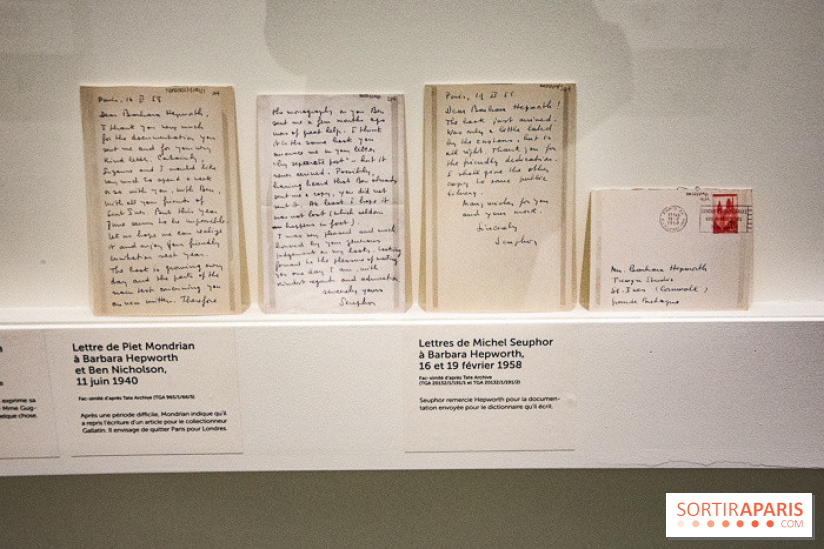 Paris, 16 II 58
Dear Barbara Hepworth,
I thank you very much
for the documentation you
sent me and for your very
kind letter. Certainly,
Suzanne and I would like
very much to spend a week
or so with you, with Ben,
with all your friends of
Saint Ives. But this year
it now seems to be impossible.
Let us hope we can realize
it and enjoy your friendly
invitation next year.
The book is growing every
day and the parts of the
main text concerning you
are now written. Therefore
the monography on you Ben
sent me a few months ago
was of great help. I think
it is the same book you
announce me in your letter
"by separate post" – but it
never arrived. Possibly,
having heard that Ben already
sent me a copy, you did not
send it. At least I hope it
was not lost (which seldom
happens in fact).
I was very pleased and much
honored by your generous
judgement on my books. Looking
forward to the pleasure of meeting
you one day I am, with
kindest regards and admiration
sincerely yours
Seuphor
Paris, 19 II 58
Dear Barbara Hepworth!
The book just arrived.
Was only a little lated
by the customs, but is
all right. Thank you for
the friendly dedication.
I shall give the other
copy to some public
library.
Many wishes for you
and your work.
Sincerely
Seuphor
Mrs. Barbara Hepworth
Trewyn Studio
St. Ives (Cornwall)
Grande Bretagne
Lettre de Piet Mondrian
à Barbara Hepworth
et Ben Nicholson,
11 juin 1940
Fac-similé d'après Tate Archive (TGA 965/1/66/5)
Après une période difficile, Mondrian indique qu'il
a repris l'écriture d'un article pour le collectionneur
Gallatin. Il envisage de quitter Paris pour Londres.
Lettres de Michel Seuphor
à Barbara Hepworth,
16 et 19 février 1958
Fac-similé d'après Tate Archive
(TGA 20132/1/191/1 et TGA 20132/1/191/2)
Seuphor remercie Hepworth pour la documen-
tation envoyée pour le dictionnaire qu'il écrit.
exprime sa
Mme Gug-
elque chose.
SORTIRAPARIS
.COM